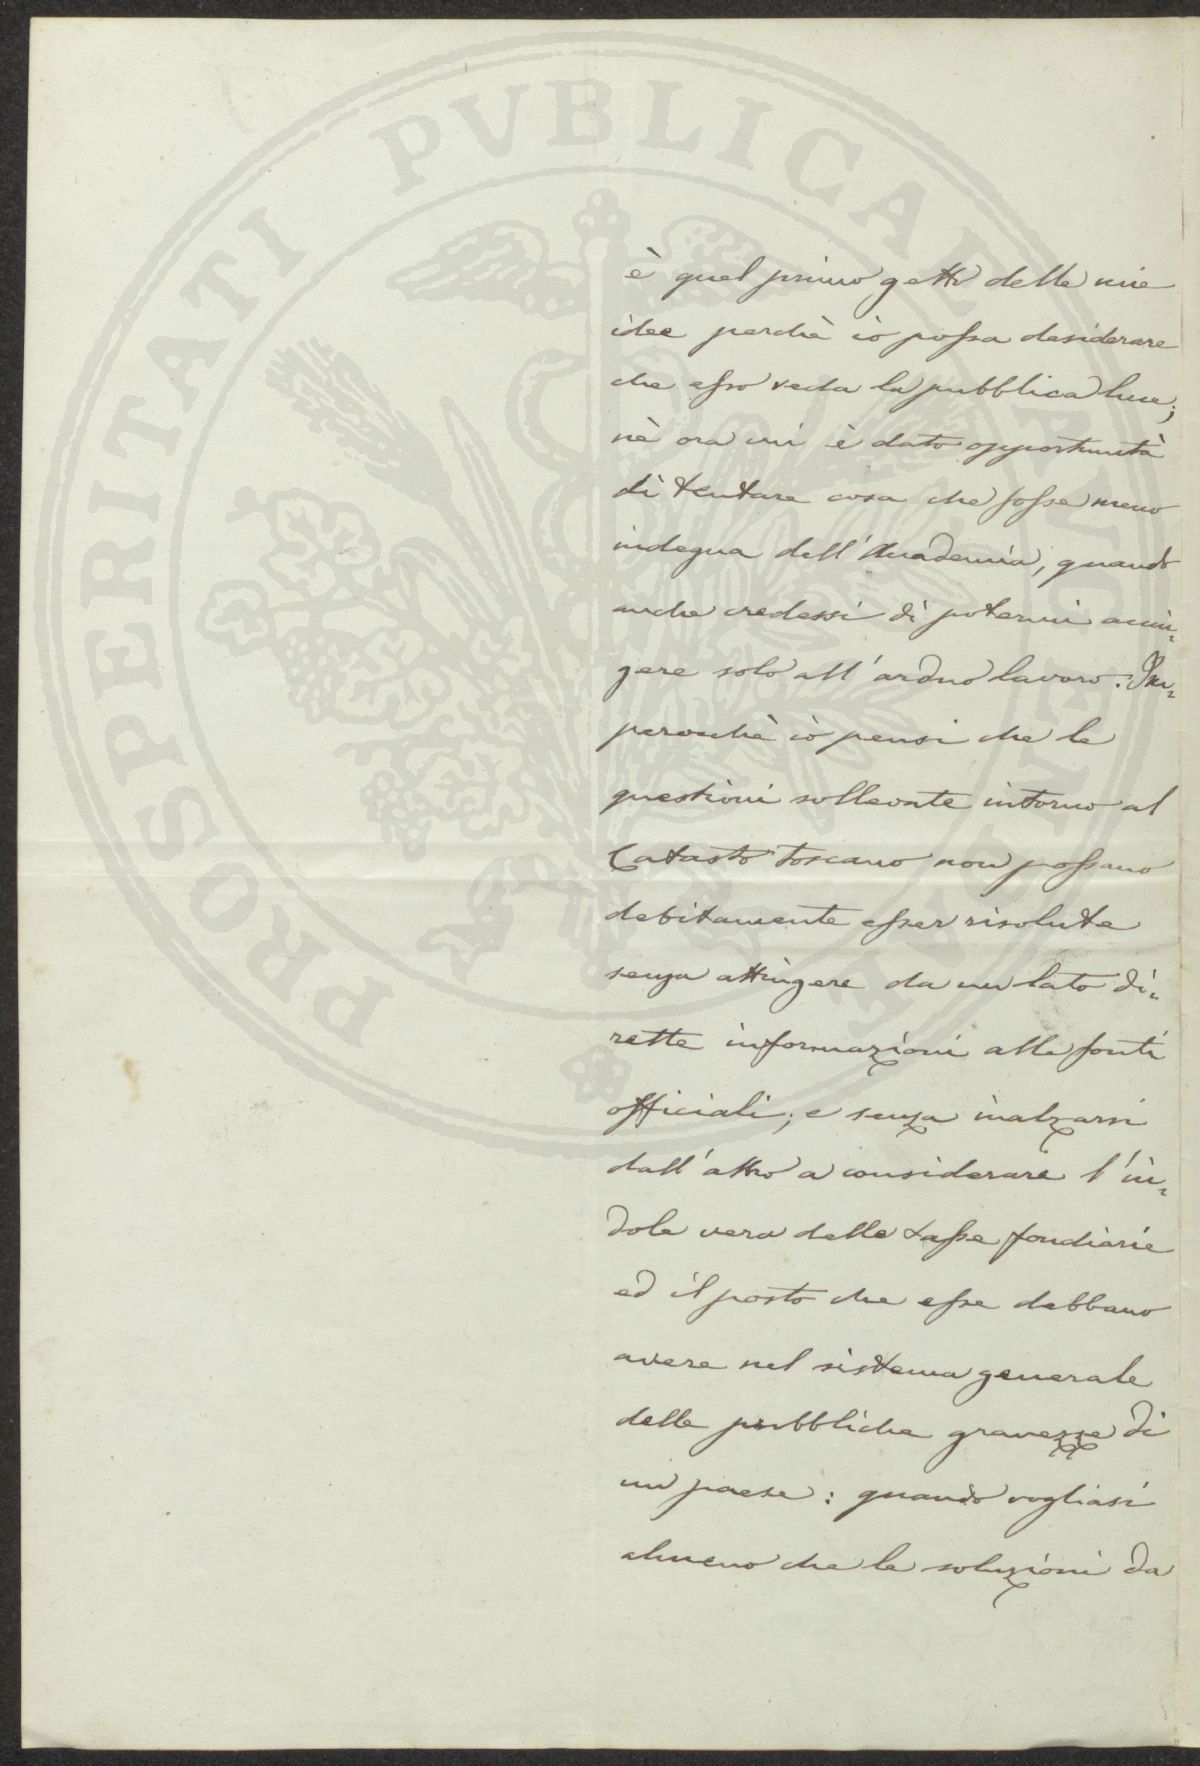 PROSPERITATI PVBLICAE AVGENDAE
è quel primo getto delle mie
idee perchè io possa desiderare
che esso veda la pubblica luce;
nè ora mi è dato opportunità
di tentare cosa che fosse meno
indegna dell'Accademia, quando
anche credessi di potermi accin=
gere solo all'arduo lavoro. Im=
perocchè io pensi che le
questioni sollevate intorno al
Catasto toscano non possano
debitamente esser risolute
senza attingere da un lato di=
rette informazioni alle fonti
officiali; e senza inalzarsi
dall'altro a considerare l'in=
dole vera delle tasse fondiarie
ed il posto che esse debbano
avere nel sistema generale
delle pubbliche gravezze di
un paese: quando vogliasi
almeno che le soluzioni da